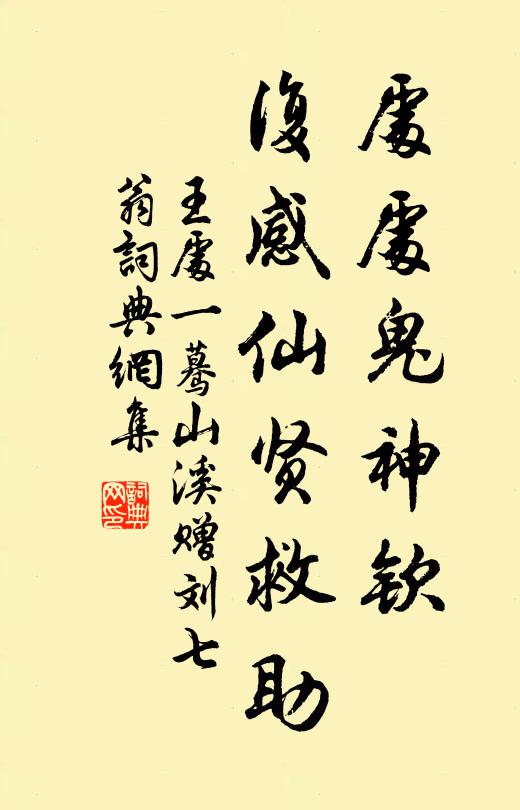 處處鬼神欽
復感仙贤救助
王處一蓦山溪赠刘七
翁詞典網集
詞典网印